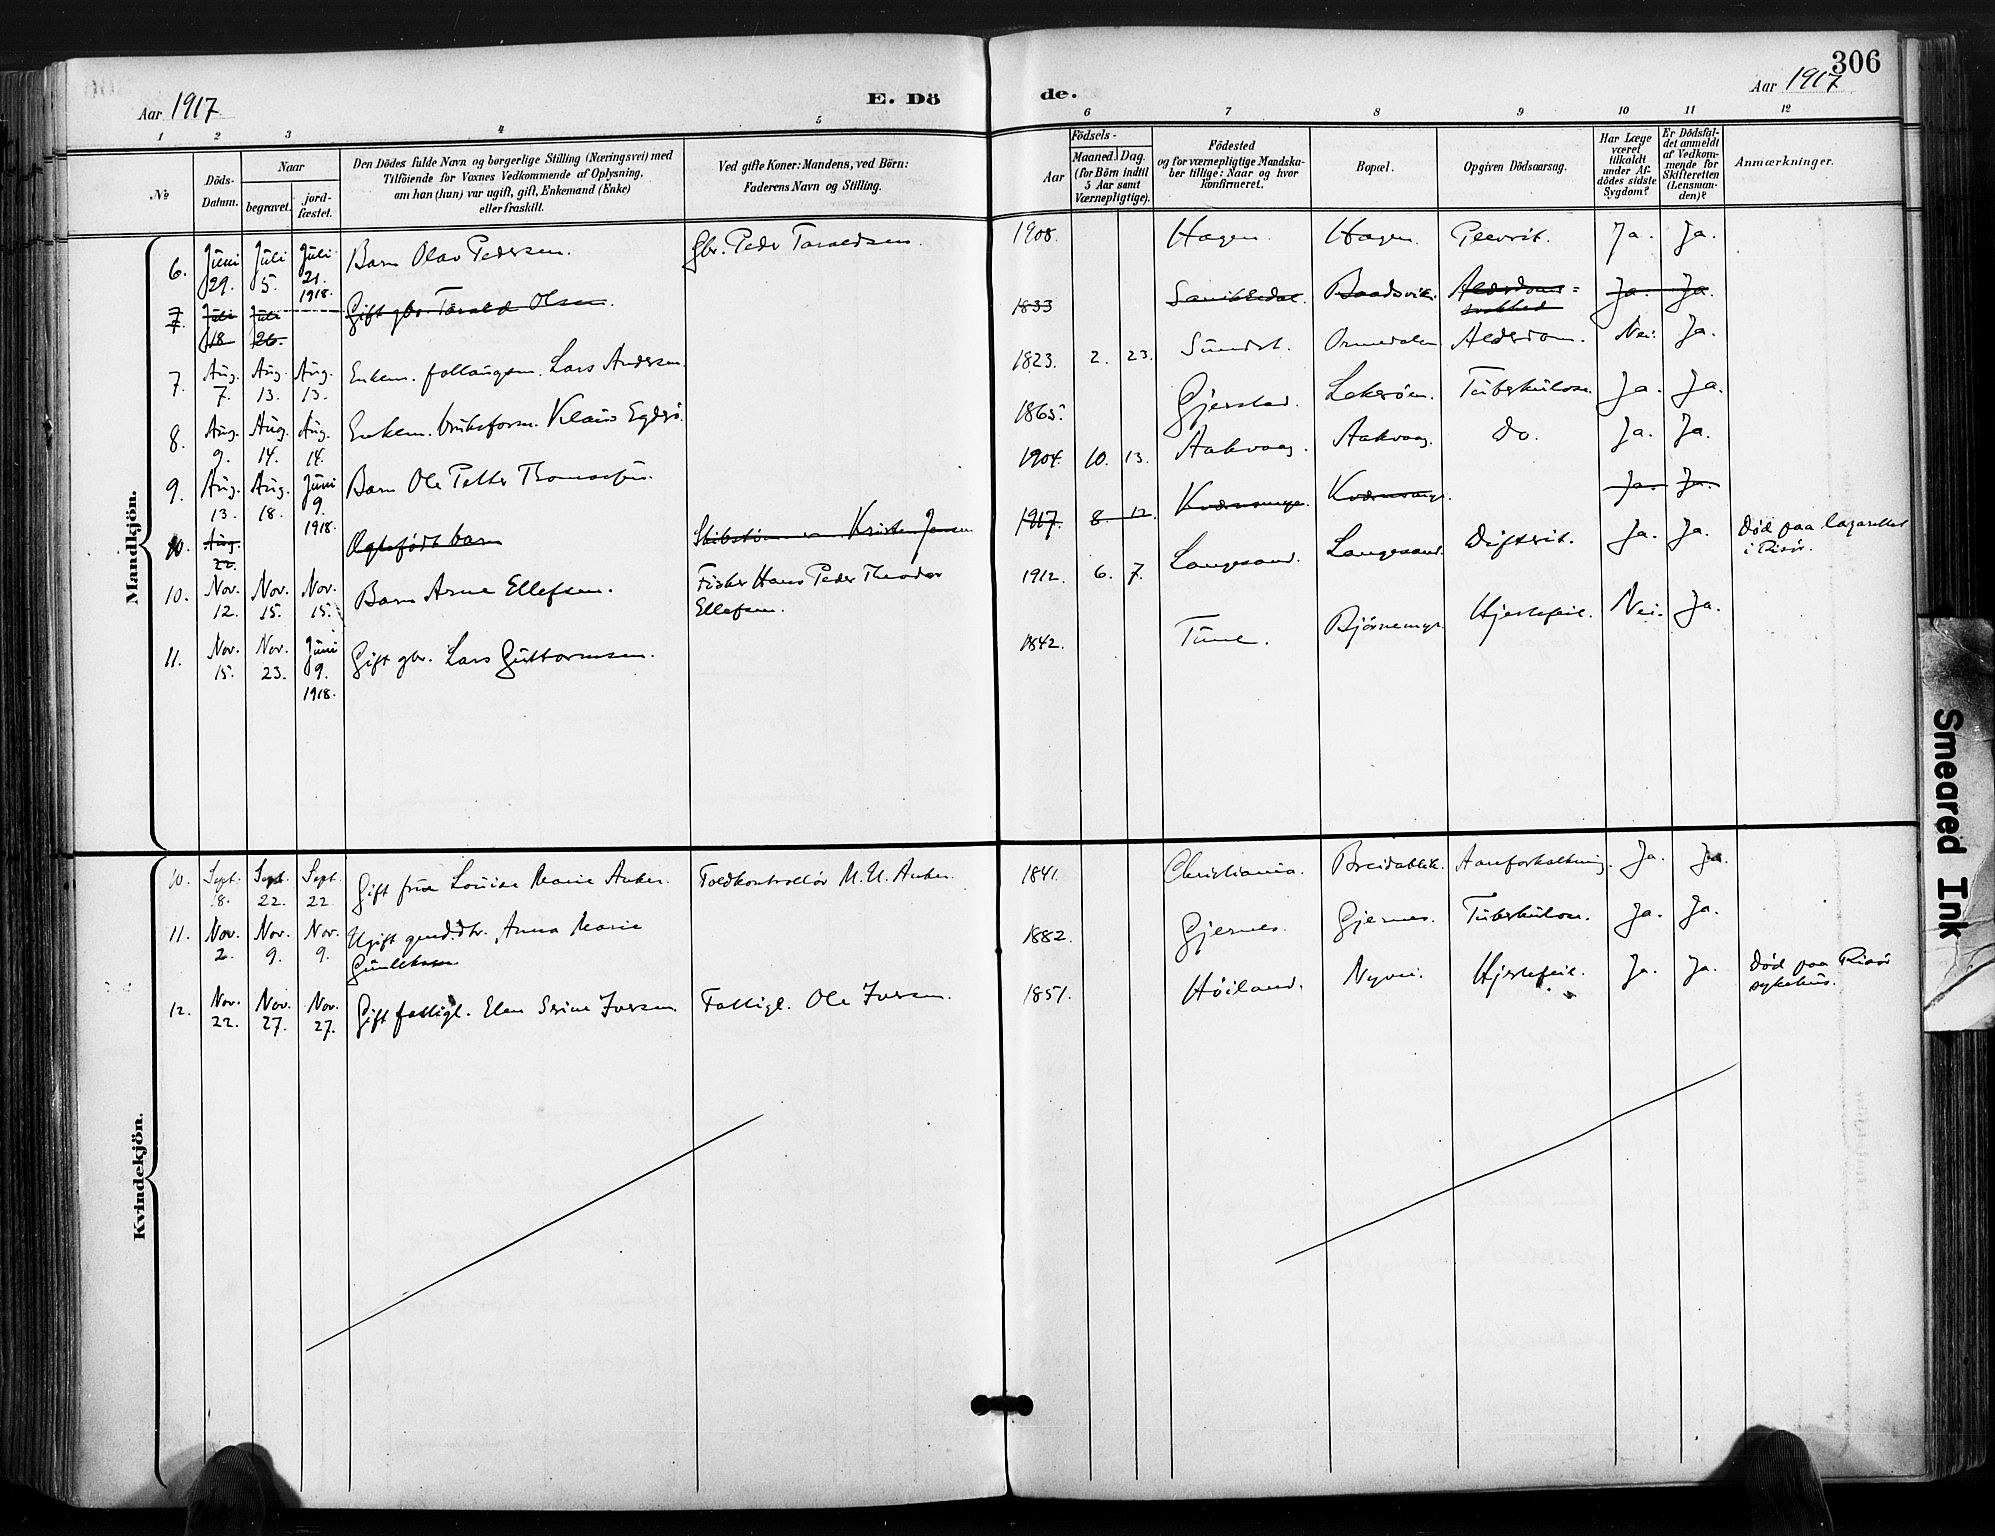 306
Aar 1917
E. Dö
de.
Aar 1917
1 2 3 4 5
6 7 8 9 10 11 12
№
Döds-
Datum.
Naar
begravet.
jord-
fæstet.
Den Dödes fulde Navn og borgerlige Stilling (Næringsvei) med
Tilföiende for Voxnes Vedkommende af Oplysning,
om han (hun) var ugift, gift, Enkemand (Enke)
eller fraskilt.
Ved gifte Koner: Mandens, ved Börn:
Faderens Navn og Stilling.
Födsels-
Aar
Maaned. Dag.
(for Börn indtil
5 Aar samt
Værnepligtige).
Födested
og for værnepligtige Mandska-
ber tillige: Naar og hvor
konfirmeret.
Bopæl.
Opgiven Dödsaarsag.
Har Læge
været
tilkaldt
under Af-
dödes sidste
Sygdom?
Er Dödsfal-
det anmeldt
af Vedkom-
mende for
Skifteretten
(Lensman-
den)?
Anmærkninger.
Mandkjön.
6. Juni 29. Juli 5. Juli 21. 1918. Barn Olav Pedersen. Gbr. Peder Taraldsen. 1908. Hagen. Hagen. Plevrit. Ja. Ja.
7. Juli 18 Juli 26. Gift gbr. Tarald Olsen 1833 Sannikedal. Baadsvik. Alderdoms=
svakhed Ja. Ja.
7. Aug. 7. Aug. 13. Aug. 13. Enkem. follaugsm. Lars Andersen. 1823. 2. 23. Sundst. Ormdalen Alderdom. Nei. Ja.
8. Aug. 9. Aug. 14. Aug. 14. Enkem. bruksform. Klaus Egdesø. 1865. Gjerstad. Lekerøen. Tuberkulose. Ja. Ja.
9. Aug. 13. Aug. 18. Juni 9. 1918. Barn Ole Petter Thomassen. 1904. 10. 13. Aakvaag. Aakvaag. Do. Ja. Ja.
10. Aug. 22. Ægtefødt barn Kristen Jensen 1917. 8. 12. Kværnsmyr. Kværnsmyr. Ja. Ja.
10. Nov. 12. Nov. 15. Nov. 15. Barn Arne Ellefsen. Fisker Hans Peder Theodor
Ellefsen. 1912. 6. 7. Langesand. Langesand. Difterit. Ja. Ja. Død paa lazarettet
i Risør.
11. Nov. 15. Nov. 23. Juni 9. 1918. Gift gbr. Lars Guttormsen. 1842. Tune. Bjørnemyr. Hjertefeil. Nei. Ja.
Kvindekjön.
10. Sept. 18. Sept. 22. Sept. 22 Gift frue Louise Marie Anker. Toldkontrollør M. U. Anker. 1841. Christiania. Breidablik. Aareforkalkning. Ja. Ja.
11. Nov. 2. Nov. 9. Nov. 9. Ugift gmd.dtr. Anna Marie
Gunleksen. 1882. Gjernes. Gjernes. Tuberkulose. Ja. Ja.
12. Nov. 22. Nov. 27. Nov. 27. Gift fattigl. Elen Serine Iversen. Fattigl. Ole Iversen. 1851. Høiland. Nyvei. Hjertefeil. Ja. Ja. Død paa Risør
sykehus.
Smeared Ink